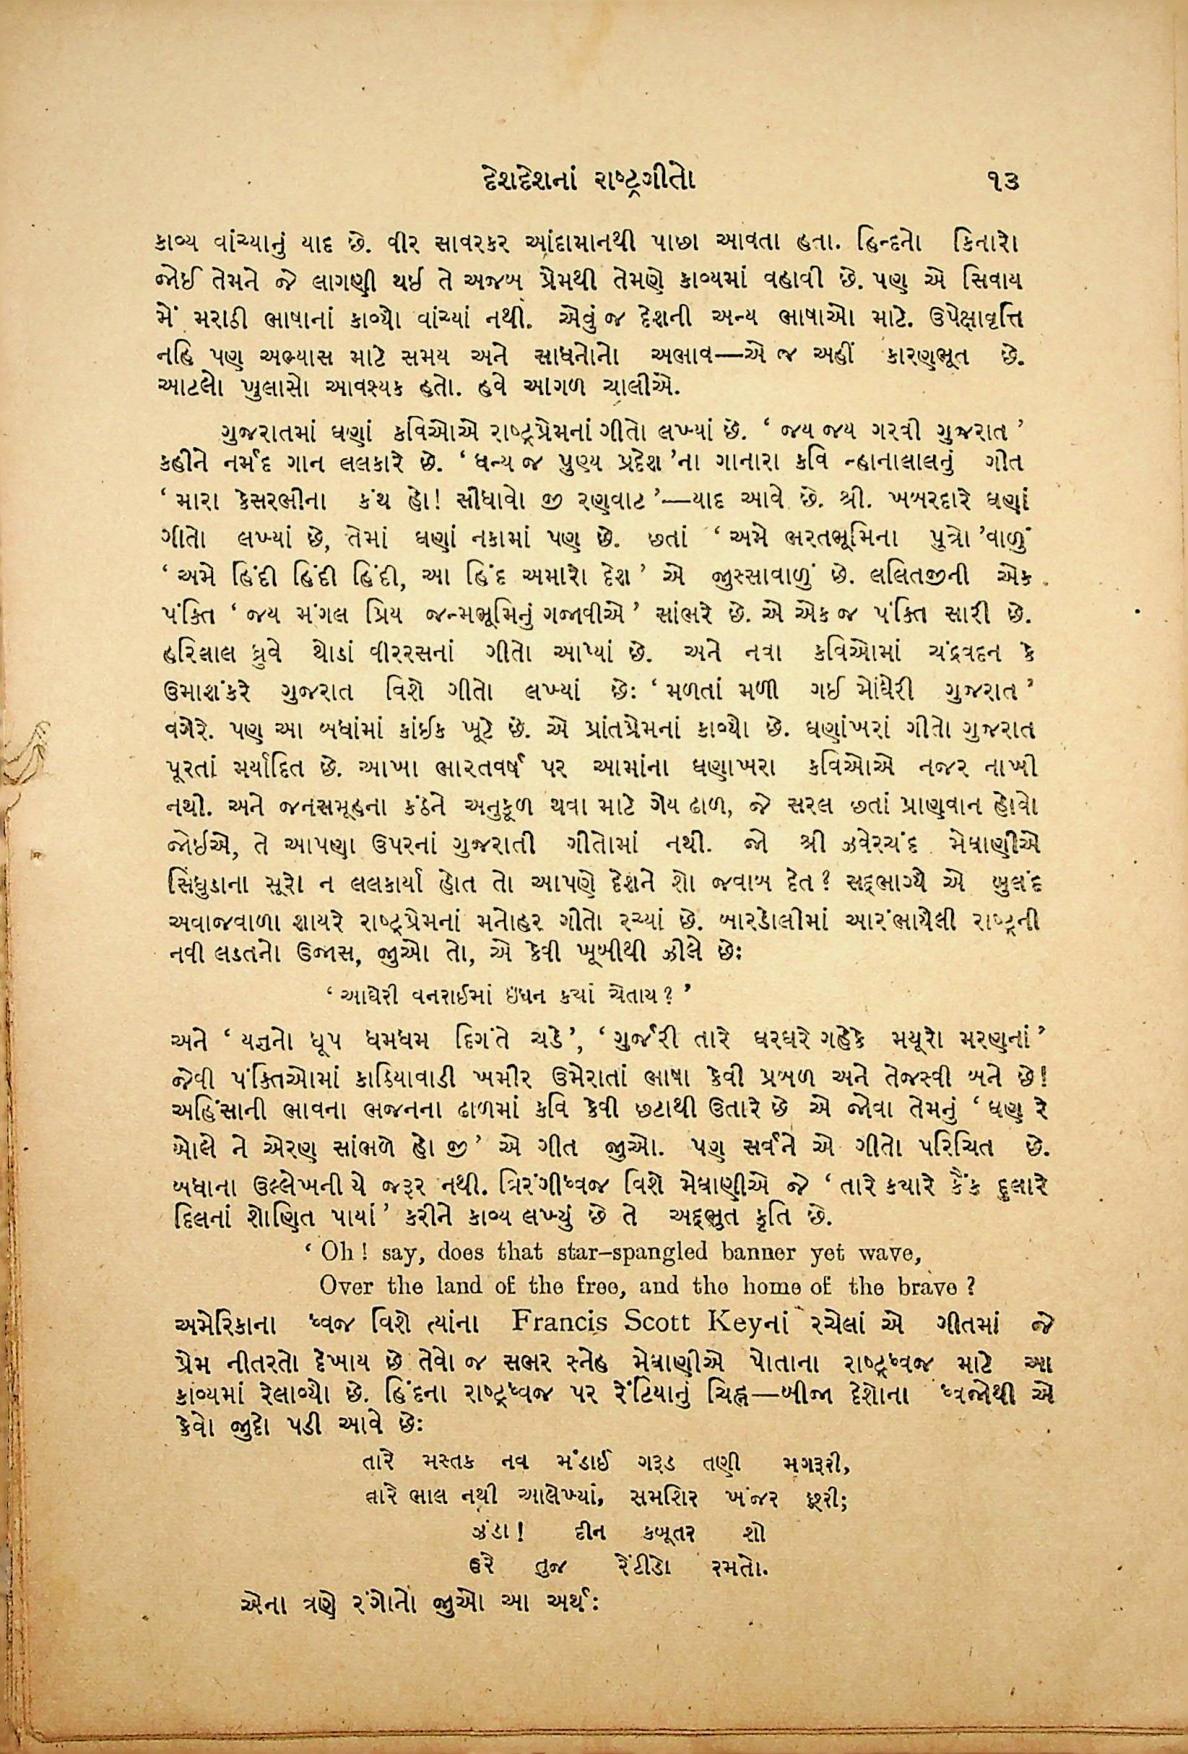 દેશદેશનાં રાષ્ટ્રગીતો ૧૩
કાવ્ય વાંચ્યાનું યાદ છે. વીર સાવરકર આંદામાનથી પાછા આવતા હતા. હિન્દનો કિનારો
જોઈ તેમને જે લાગણી થઇ તે અજબ પ્રેમથી તેમણે કાવ્યમાં વહાવી છે. પણ એ સિવાય
મેં મરાઠી ભાષાનાં કાવ્યો વાંચ્યાં નથી. એવું જ દેશની અન્ય ભાષાઓ માટે. ઉપેક્ષાવૃત્તિ
નહિ પણ અભ્યાસ માટે સમય અને સાધનોનો અભાવ—એ જ અહીં કારણભૂત છે.
આટલો ખુલાસો આવશ્યક હતો. હવે આગળ ચાલીએ.
ગુજરાતમાં ઘણાં કવિઓએ રાષ્ટ્રપ્રેમનાં ગીતો લખ્યાં છે. ‘ જય જય ગરવી ગુજરાત ’
કહીને નર્મદ ગાન લલકારે છે. ‘ ધન્ય જ પુણ્ય પ્રદેશ ’ના ગાનારા કવિ ન્હાનાલાલનું ગીત
‘ મારા કેસરભીના કંથ હો! સીધાવો જી રણવાટ ’—યાદ આવે છે. શ્રી. ખબરદારે ઘણાં
ગીતો લખ્યાં છે, તેમાં ઘણાં નકામાં પણ છે. છતાં ‘ અમે ભરતભૂમિના પુત્રો ’વાળું
‘ અમે હિંદી હિંદી હિંદી, આ હિંદ અમારો દેશ ’ એ જુસ્સાવાળું છે. લલિતજીની એક
પંક્તિ ‘ જય મંગલ પ્રિય જન્મભૂમિનું ગજાવીએ ’ સાંભરે છે. એ એક જ પંક્તિ સારી છે.
હરિલાલ ધ્રુવે થોડાં વીરરસનાં ગીતો આપ્યાં છે. અને નવા કવિઓમાં ચંદ્રવદન કે
ઉમાશંકરે ગુજરાત વિશે ગીતો લખ્યાં છે: ‘ મળતાં મળી ગઈ મોંઘેરી ગુજરાત ’
વગેરે. પણ આ બધાંમાં કાંઈક ખૂટે છે. એ પ્રાંતપ્રેમનાં કાવ્યો છે. ઘણાંખરાં ગીતો ગુજરાત
પૂરતાં મર્યાદિત છે. આખા ભારતવર્ષ પર આમાંના ઘણાખરા કવિઓએ નજર નાખી
નથી. અને જનસમૂહના કંઠને અનુકૂળ થવા માટે ગેય ઢાળ, જે સરલ છતાં પ્રાણવાન હોવો
જોઇએ, તે આપણા ઉપરનાં ગુજરાતી ગીતોમાં નથી. જો શ્રી ઝવેરચંદ મેઘાણીએ
સિંધુડાના સૂરો ન લલકાર્યા હોત તો આપણે દેશને શો જવાબ દેત? સદ્દભાગ્યે એ બુલંદ
અવાજવાળા શાયરે રાષ્ટ્રપ્રેમનાં મનોહર ગીતો રચ્યાં છે. બારડોલીમાં આરંભાયેલી રાષ્ટ્રની
નવી લડતનો ઉજાસ, જુઓ તો, એ કેવી ખૂબીથી ઝીલે છે:
‘ આઘેરી વનરાઈમાં ઇંધન ક્યાં ચેતાય? ’
અને ‘ યજ્ઞનો ધૂપ ધમધમ દિગંતે ચડે’, ‘ ગુર્જરી તારે ઘરઘરે ગહેકે મયૂરો મરણનાં ’
જેવી પંક્તિઓમાં કાઠિયાવાડી ખમીર ઉમેરાતાં ભાષા કેવી પ્રબળ અને તેજસ્વી બને છે!
અહિંસાની ભાવના ભજનના ઢાળમાં કવિ કેવી છટાથી ઉતારે છે એ જોવા તેમનું ‘ ઘણ રે
બોલે ને એરણ સાંભળે હો જી’ એ ગીત જુઓ. પણ સર્વને એ ગીતો પરિચિત છે.
બધાના ઉલ્લેખની યે જરૂર નથી. ત્રિરંગીધ્વજ વિશે મેઘાણીએ જે ‘ તારે કયારે કૈંક દુલારે
દિલનાં શોણિત પાયાં’ કરીને કાવ્ય લખ્યું છે તે અદ્દભુત કૃતિ છે.
‘ Oh ! say, does that star-spangled banner yet wave,
Over the land of the free, and the home of the brave ?
અમેરિકાના ધ્વજ વિશે ત્યાંના Francis Scott Keyનાં રચેલાં એ ગીતમાં જે
પ્રેમ નીતરતો દેખાય છે તેવો જ સભર સ્નેહ મેઘાણીએ પોતાના રાષ્ટ્રધ્વજ માટે આ
કાવ્યમાં રેલાવ્યો છે. હિંદના રાષ્ટ્રધ્વજ પર રેંટિયાનું ચિહ્ન—બીજા દેશોના ધ્વજોથી એ
કેવો જુદો પડી આવે છે:
તારે મસ્તક નવ મંડાઈ ગરૂડ તણી મગરૂરી,
તારે ભાલ નથી આલેખ્યાં, સમશિર ખંજર છૂરી;
ઝંડા! દીન કબૂતર શો
ઉરે તુજ રેંટીડો રમતો.
એના ત્રણે રંગોનો જુઓ આ અર્થ: